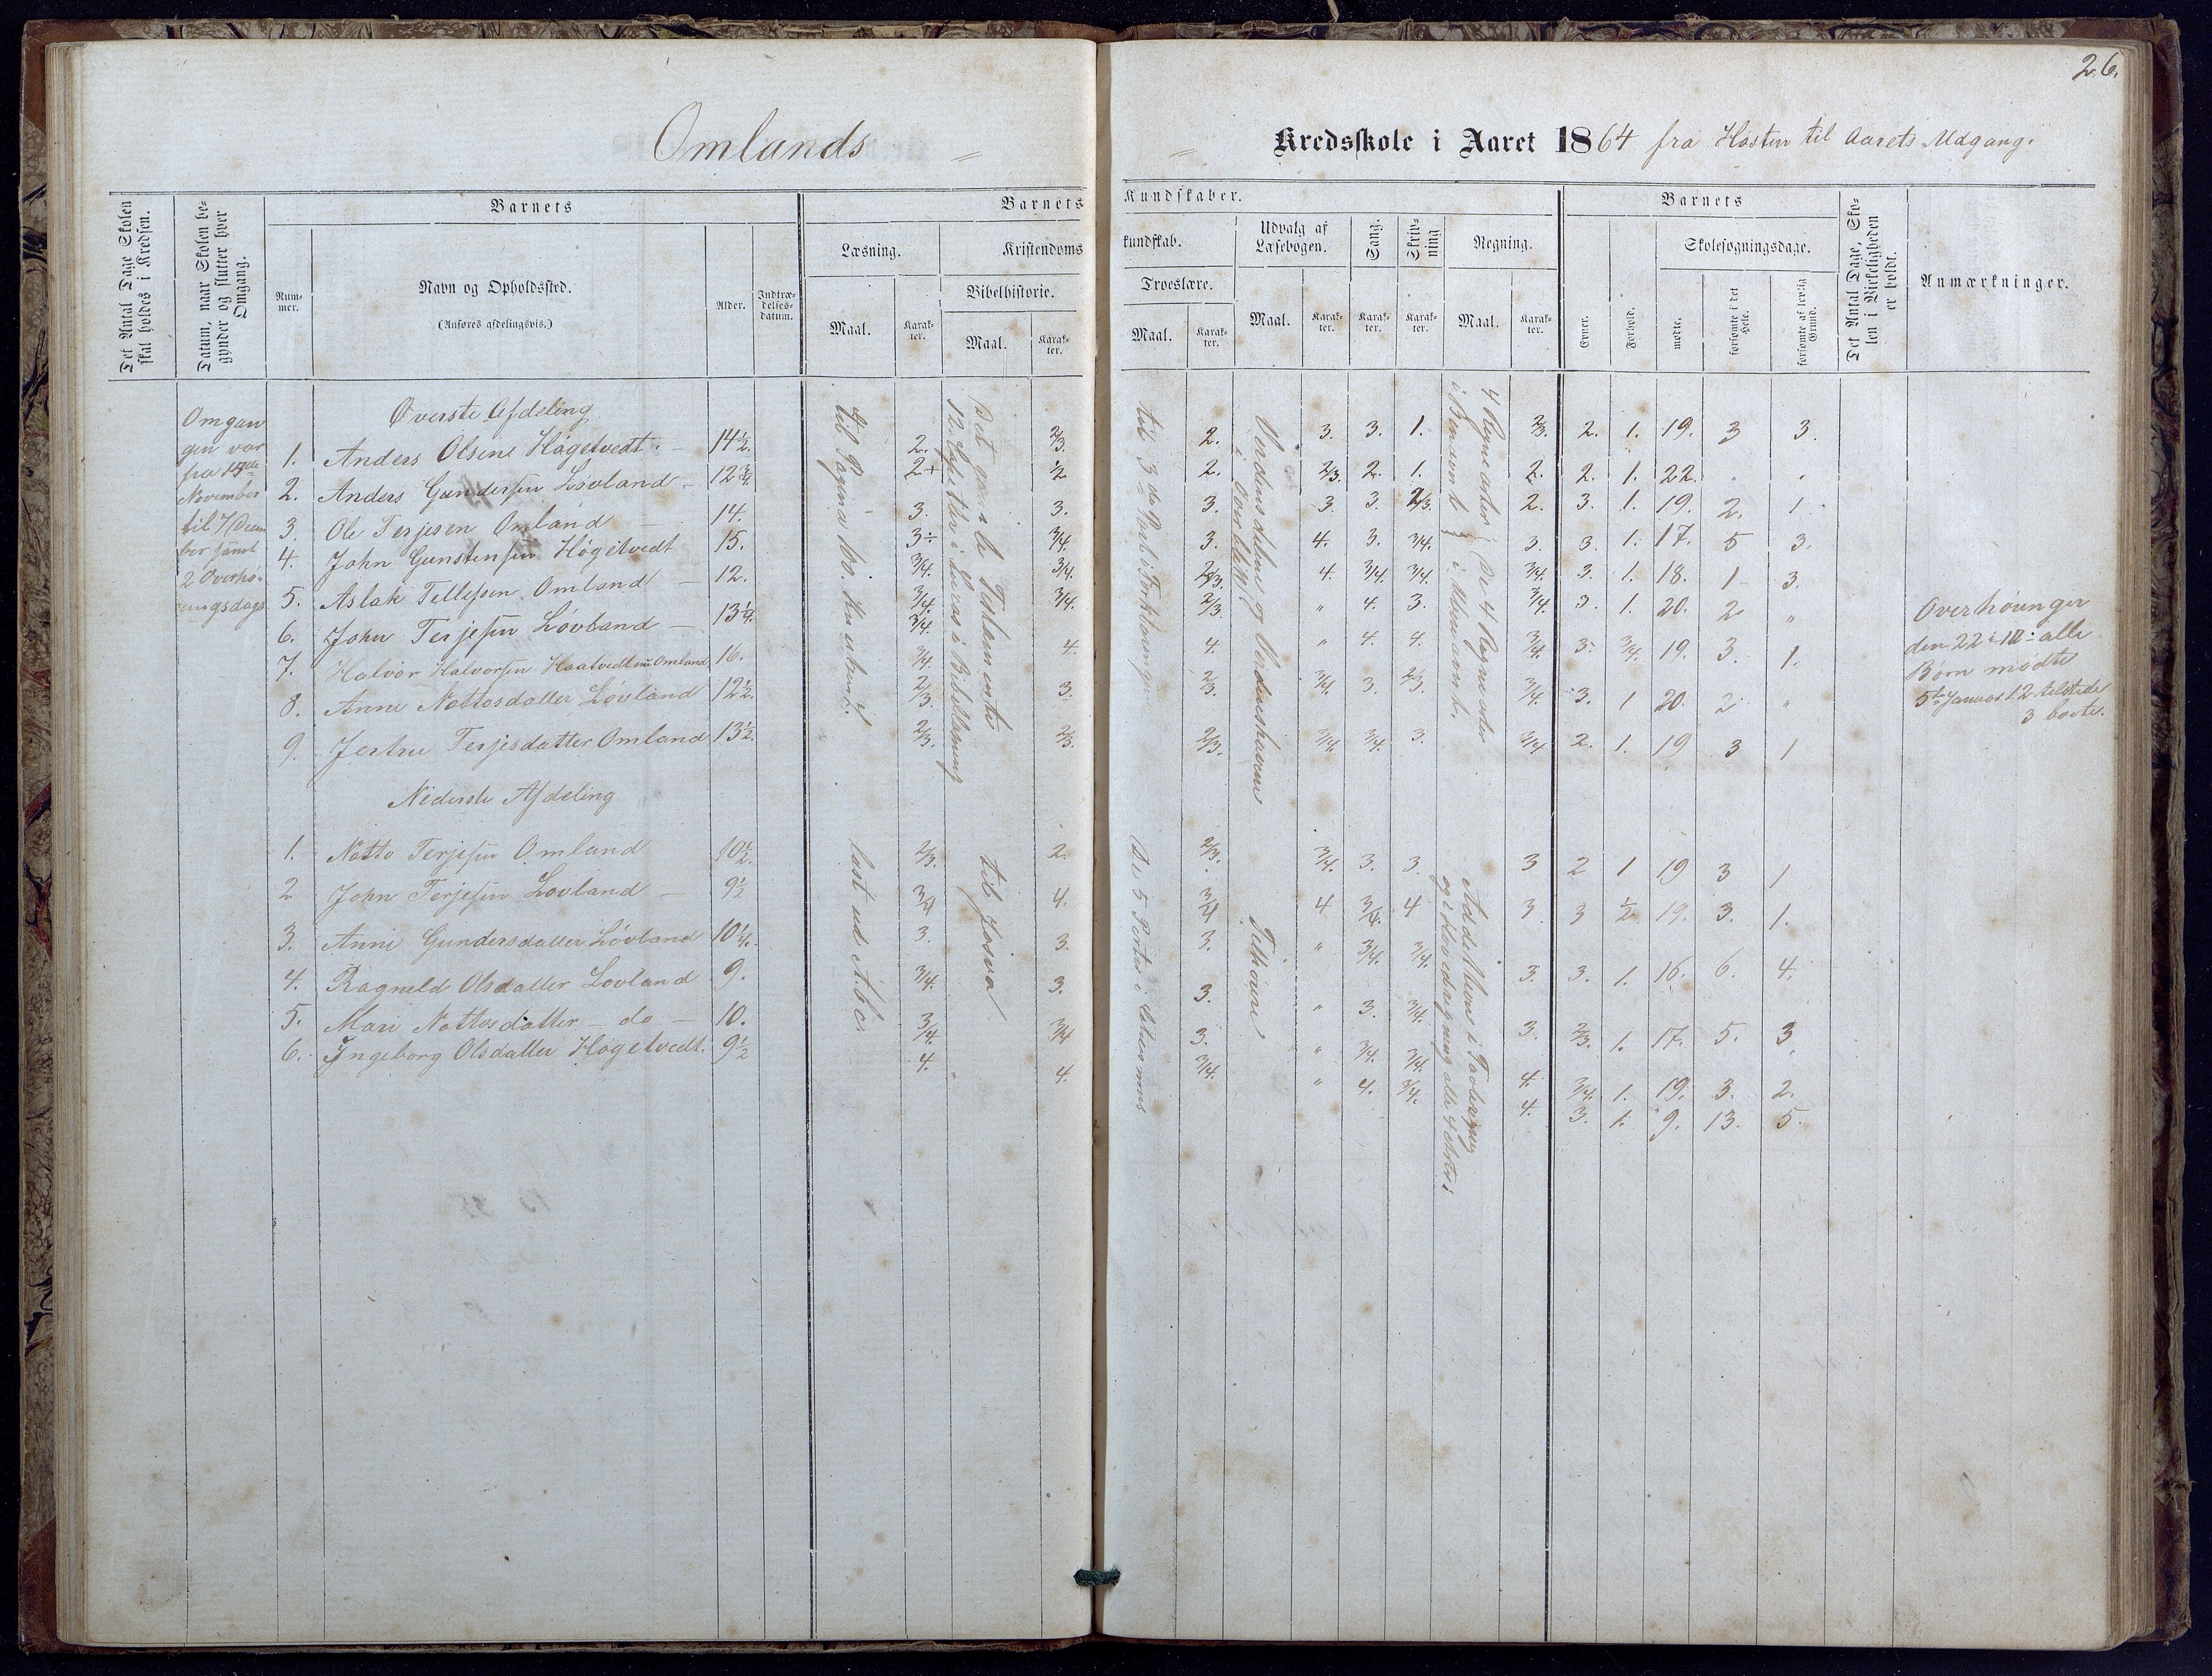 26.
Omlands
Kredsskole i Aaret 1864 fra Høsten til Aarets Udgang.
Det Antal Dage Skolen skal holdes i Kredsen.
Datum, naar Skolen begynder og slutter hver Omgang.
Barnets
Nummer.
Navn og Opholdssted.
(Anføres afdelingsvis.)
Alder.
Indtrædelsesdatum.
Barnets
Kundskaber.
Læsning.
Maal.
Karakter.
Kristendoms
kundskab.
Bibelhistorie.
Maal.
Karakter.
Troeslære.
Maal.
Karakter.
Udvalg af Læsebogen.
Maal.
Karakter.
Sang.
Karakter.
Skrivning
Karakter.
Regning.
Maal.
Karakter.
Barnets
Evner.
Forhold.
Skolesøgningsdage.
mødte.
forsømte i det Hele.
forsømte af lovlig Grund.
Det Antal Dage, Skolen i Virkeligheden er holdt.
Anmærkninger.
Omgan
gen var
fra 15de
November
til 7 Decem
ber samt
2 Overhø-
ringsdage
Øverste Afdeling
1. Anders Olsene Høgetvedt. 14½. 2. 2/3. 2. 3. 3. 1. 2/3. 2. 1. 19. 3 3.
2. Anders Gundersen Løvland 12¾. 2+ ½ 2. 2/3. 2. 1. 2. 2. 1. 22. " "
3. Ole Terjesen Omland 14. 3. 3. 3. 3. 3. 2/3. 2. 3. 1. 19. 2. 1
4. John Gunstensen Høgetvedt 15. 3÷ 3/4. 3. 4. 3. 3/4. 3. 3. 1. 17. 5 3.
5. Aslak Tellefsen Omland 12. 3/4. 3/4. 2/3. 4. 3/4. 3/4. 3/4. 3. 1. 18. 1 3.
6. John Terjesen Løvland 13¼. 3/4. 3/4. 2/3. " 4. 3. 3/4. 3. 1. 20. 2 "
7. Halvor Halvorsen Haatvedt nu Omland 16. 3/4. 4. 4. " 4. 4. 3/4. 3. 3/4. 19. 3. 1.
8. Anne Nottosdatter Løvland 12½. 2/3. 3. 2/3. 3/4. 3. 2/3. 3/4. 3. 1 20. 2 "
9. Jertru Terjesdatter Omland 13½. 2/3. 2/3. 2/3. 3/4. 3/4. 3. 3/4 2. 1. 19 3 1
til Pagina 80.
Det gamle Testamente
12 Høitider i Lucas i Bibellæsning
til 3de Part i Forklaringen
Verdensdelene og Verdenshavene
i Overblik
4 Regnearter
i Benævnt
De 4 Regnearter
i Ubenævnt.
Nederste Afdeling
1. Notto Terjesen Omland 10½. 2/3. 2. 2/3. 3/4. 3. 3. 3 2 1 19 3 1
2 John Terjesen Løvland 9½ 3/4 4. 3/4 4 3/4. 4 3. 3 ½ 19. 3. 1.
3. Anne Gundersdatter Løvland 10¼. 3. 3. 3. " 3/4. 3/4. 3. 3. 1. 16. 6. 4.
4. Ragneld Olsdatter Løvland 9. 3/4. 3. 3. " 3. 3/4. 3. 2/3. 1. 17. 5. 3
5. Mari Nottosdatter – do – 10. 3/4. 3/4 3. " 3/4. 3/4. 4. 3/4. 1. 19. 3. 2.
6. Ingeborg Olsdatter Høgetvedt. 9½ 4. 4. 3/4. " 4. 3/4. 4. 3. 1. 9. 13. 5.
læst ud A.b.c.
til Josva
De 5 Parter i
Additions i Tavleregning
og i Hovedregning alle 4 Arter:
Overhøringer
den 22 i 12 alle
Børn mødte
5te Januar 12 tilstede
3 borte.